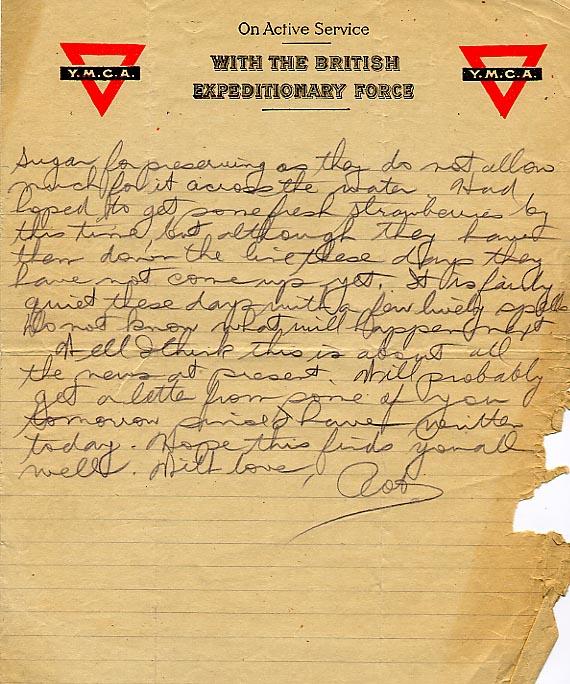 On Active Service
WITH THE BRITISH
EXPEDITIONARY FORCE
Y.M.C.A.
Y.M.C.A.
Sugar for preserving as they do not allow
much for it across the water. Had
hoped to get some fresh strawberries by
this time, but although they have
them down the line these days they
have not come up yet. It is fairly
quiet these days with a few lively spells
Do not know what will happen next
Well I think this is about all
the news at present. Will probably
get a letter from some of you
tomorrow since I have written
today. Hope this finds you all
well. With love, Rob